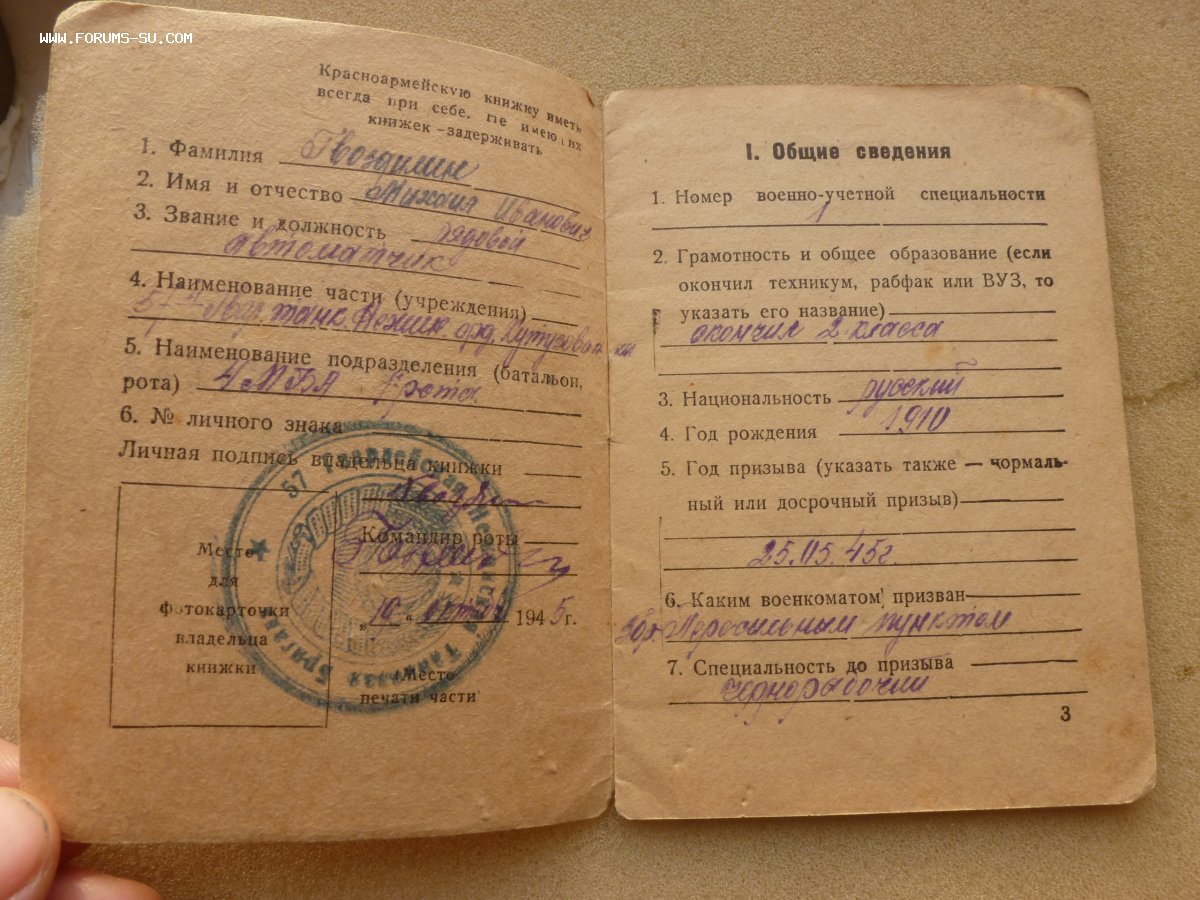 WWW.FORUMS-SU.COM
Красноармейскую книжку иметь
всегда при себе. Не имеющих
книжек - задерживать
1. Фамилия
2. Имя и отчество Михаил Иванович
3. Звание и должность рядовой
автоматчик
4. Наименование части (учреждения)
танк. Кутузова
5. Наименование подразделения (батальон,
рота) рота
6. № личного знака
Личная подпись владельца книжки
Командир роты
„10“ 1945 г.
Место
для
фотокарточки
владельца
книжки
Место
печати части
57 Гвардейская Танковая Бригада
I. Общие сведения
1. Номер военно-учетной специальности
1
2. Грамотность и общее образование (если
окончил техникум, рабфак или ВУЗ, то
указать его название)
окончил 2 класса
3. Национальность русский
4. Год рождения 1910
5. Год призыва (указать также — нормаль-
ный или досрочный призыв)
25.05.45г.
6. Каким военкоматом призван
Пересыльным пунктом
7. Специальность до призыва
чернорабочий
3